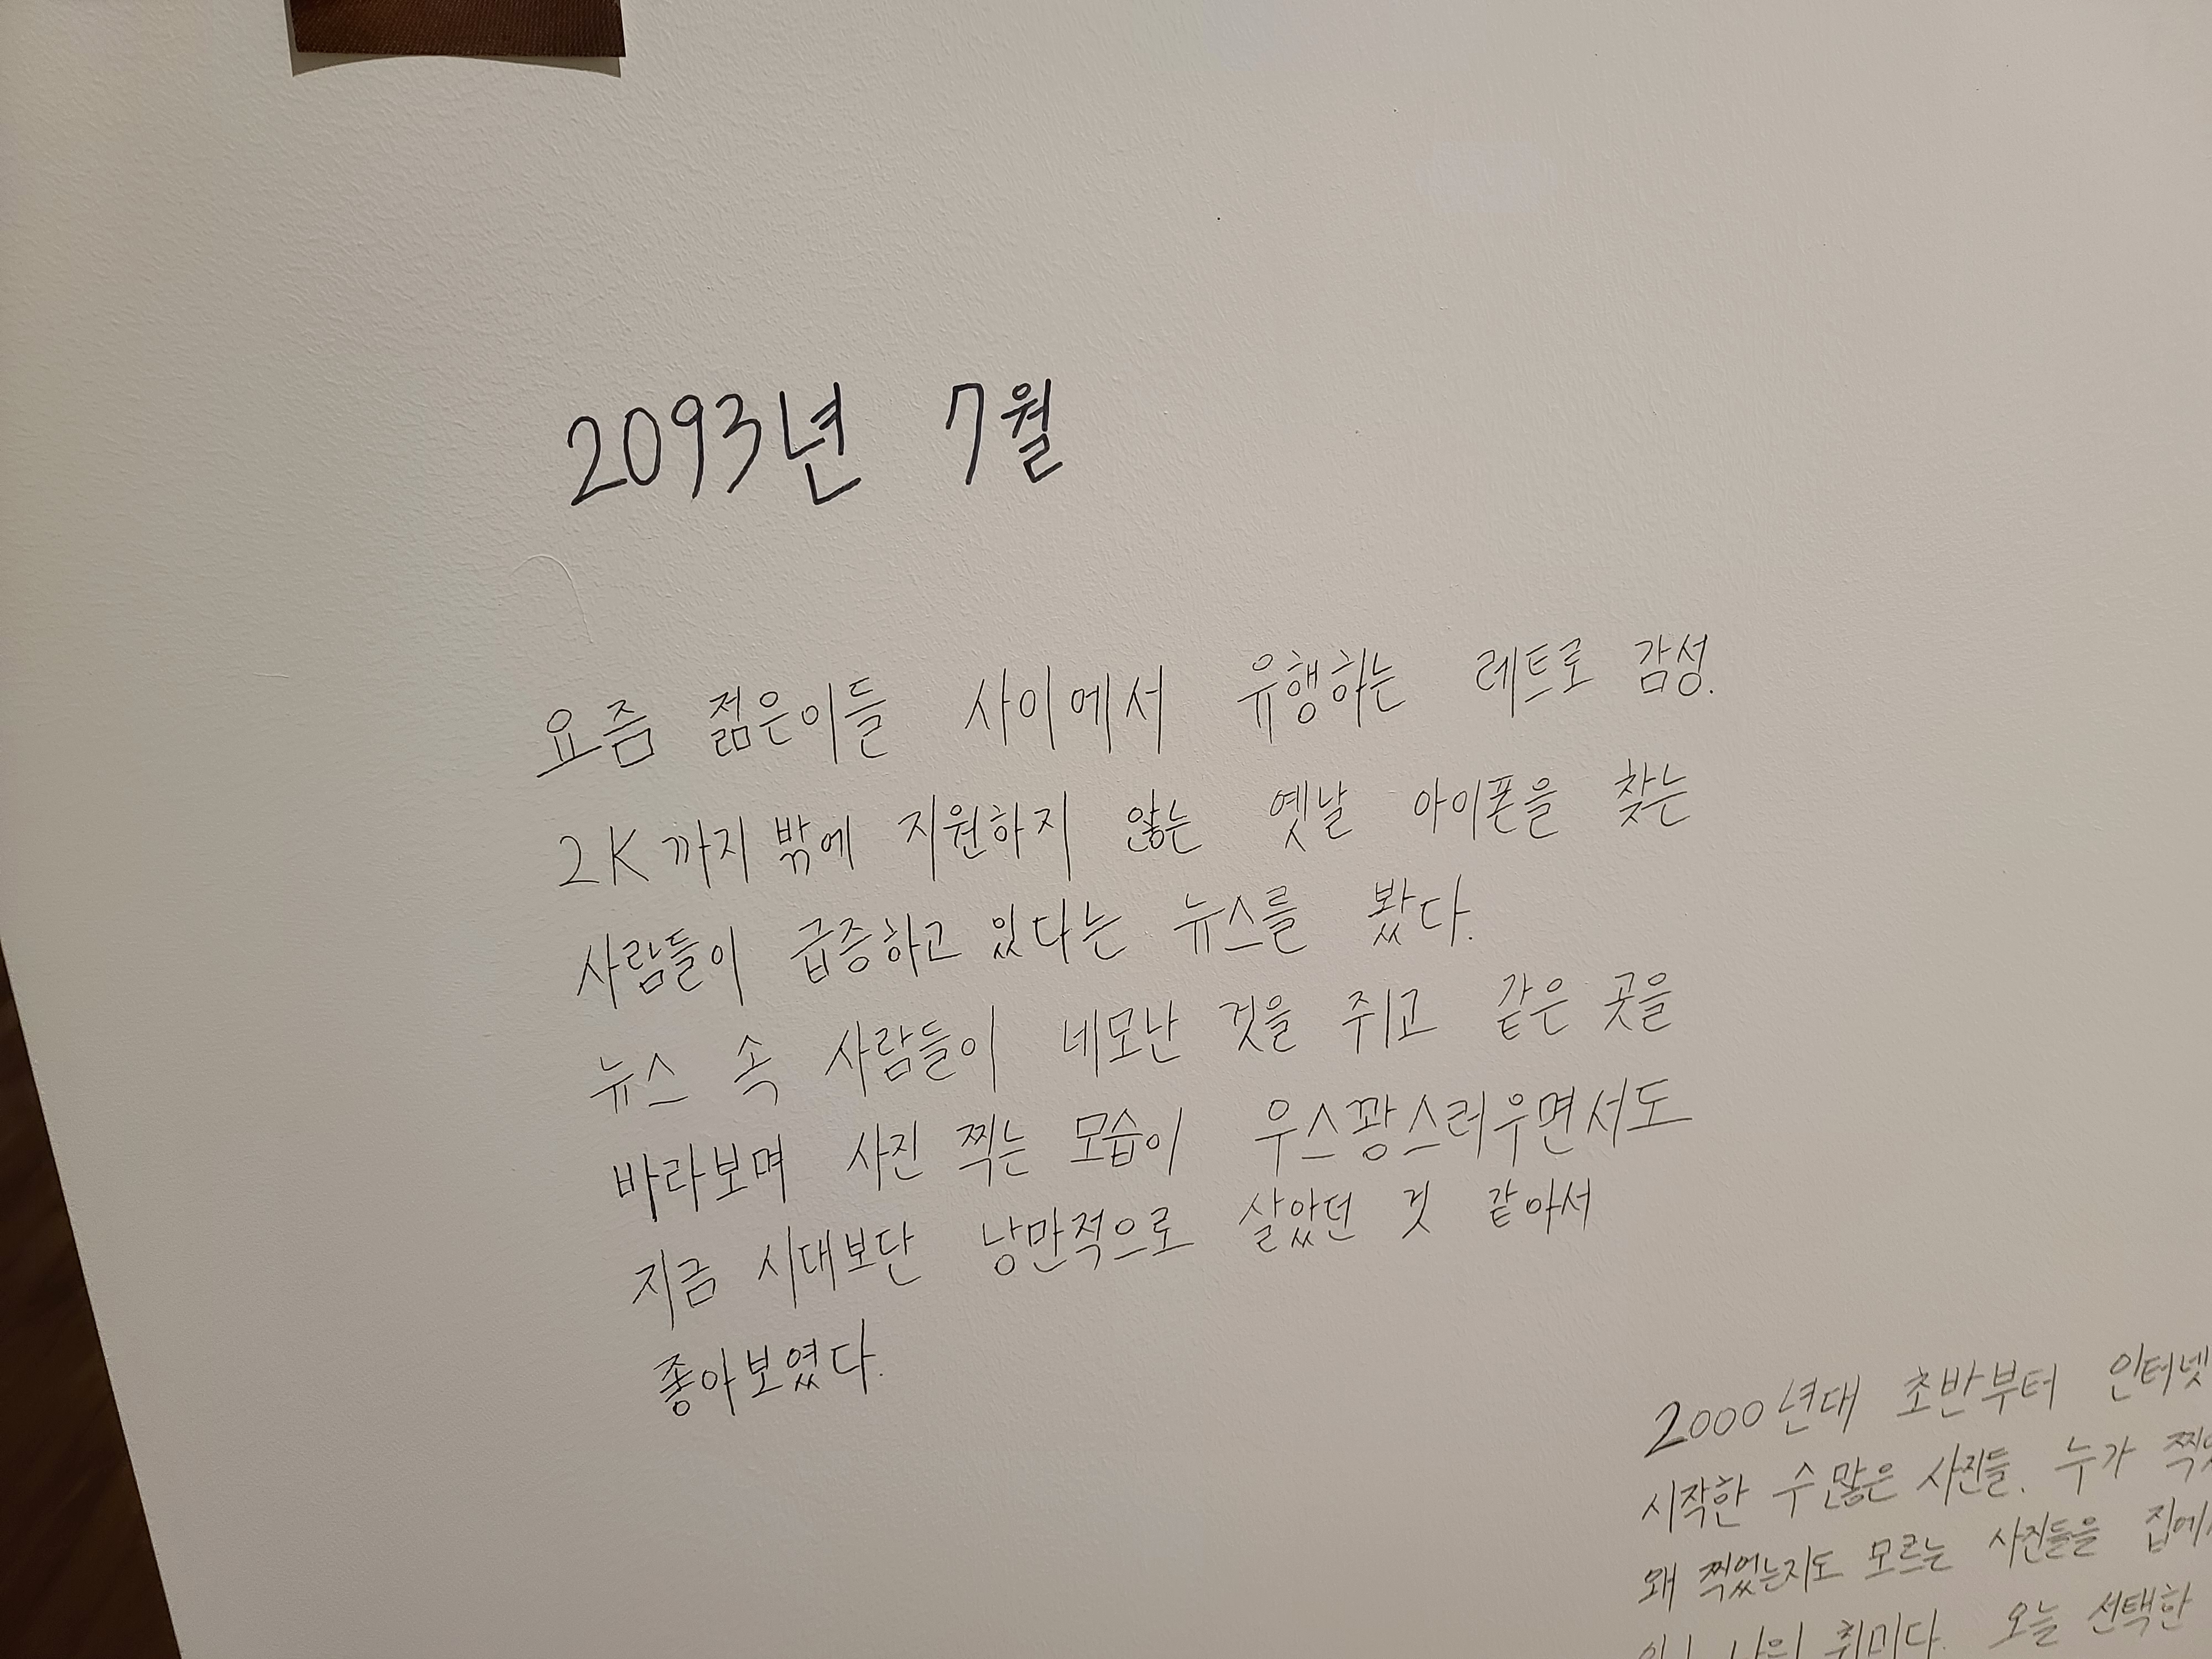 2093년 7월
요즘 젊은이들 사이에서 유행하는 레트로 감성.
2K까지밖에 지원하지 않는 옛날 아이폰을 찾는
사람들이 급증하고 있다는 뉴스를 봤다.
뉴스 속 사람들이 네모난 것을 쥐고 같은 곳을
바라보며 사진 찍는 모습이 우스꽝스러우면서도
지금 시대보단 낭만적으로 살았던 것 같아서
좋아보였다.
2000년대 초반부터 인터넷
시작한 수많은 사진들. 누가
왜 찍었는지도 모르는 사진들을
나의 취미다. 오늘 선택한